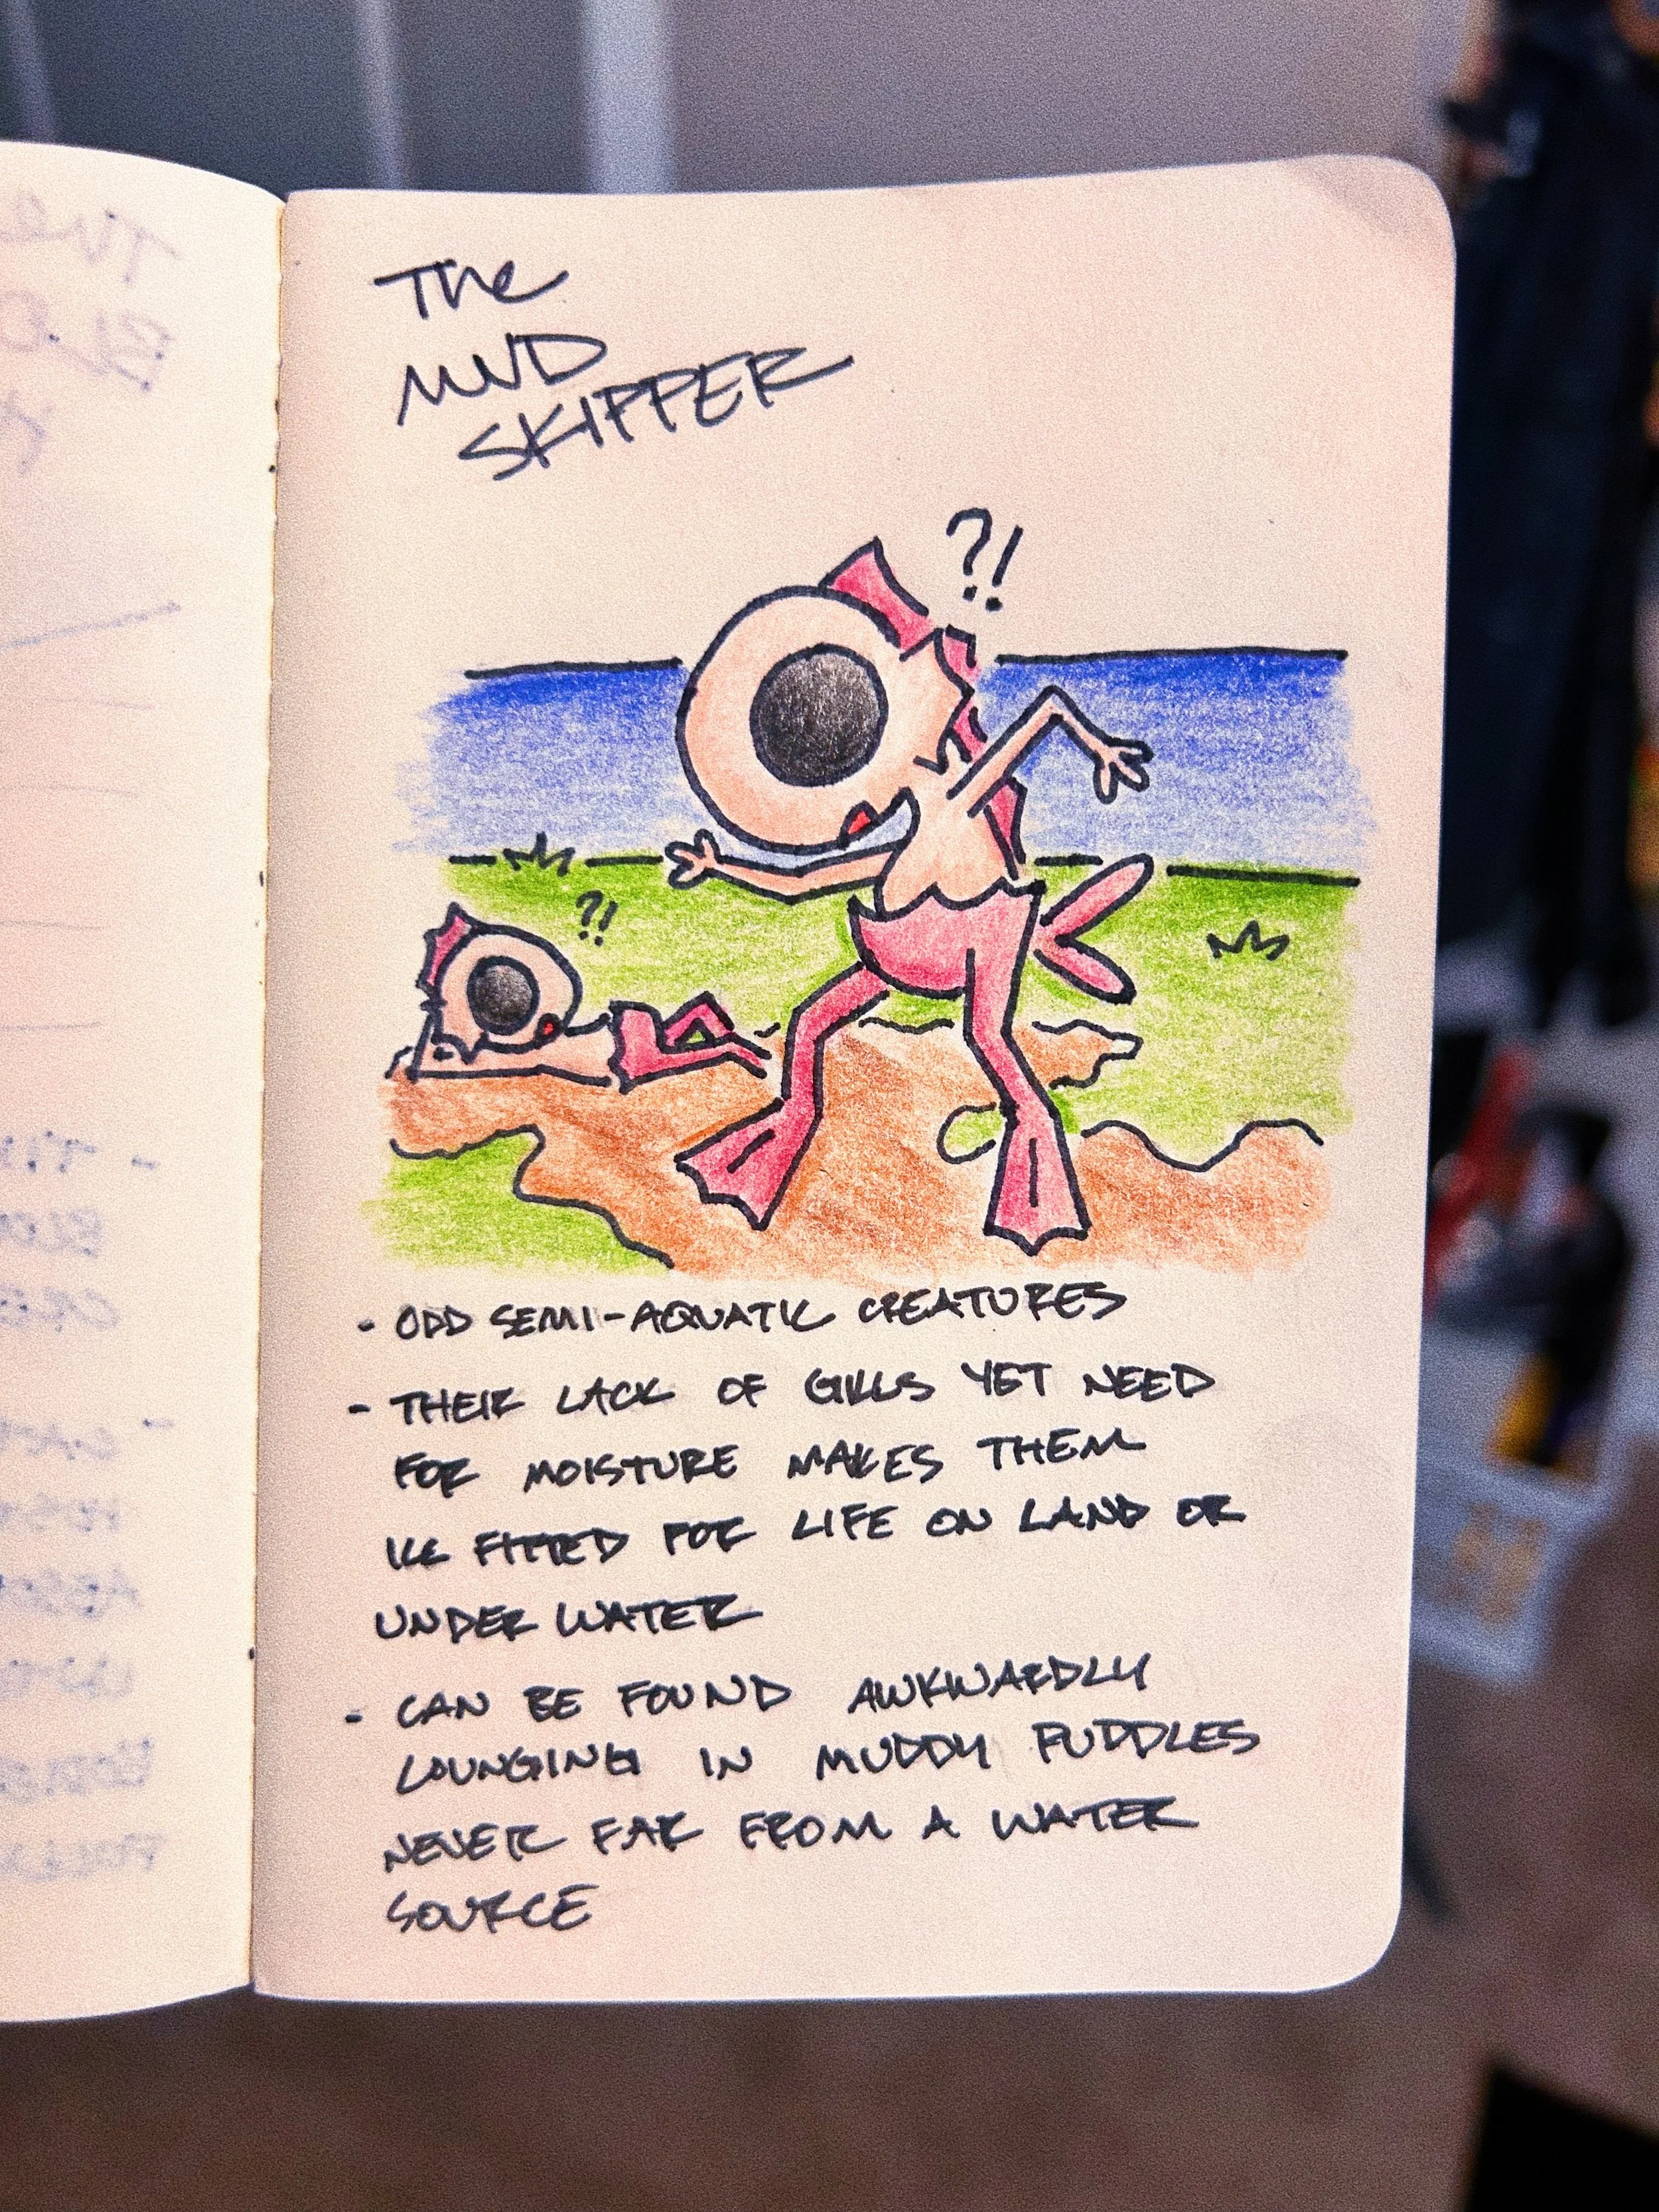 The
MUD
SKIPPER
?!
?!
- ODD SEMI-AQUATIC CREATURES
- THEIR LACK OF GILLS YET NEED
FOR MOISTURE MAKES THEM
ILL FITTED FOR LIFE ON LAND OR
UNDER WATER
- CAN BE FOUND AWKWARDLY
LOUNGING IN MUDDY PUDDLES
NEVER FAR FROM A WATER
SOURCE